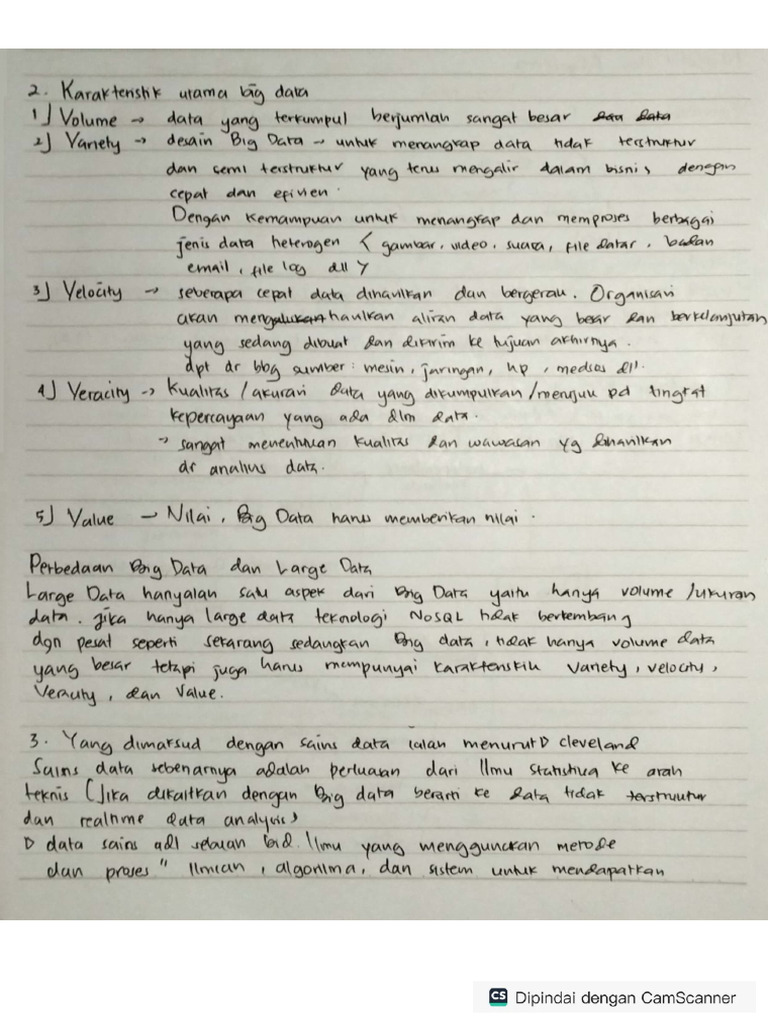 2. Karakteristik utama big data
1) Volume → data yang terkumpul berjumlah sangat besar
2) Variety → desain Big Data → untuk menangkap data tidak terstruktur
dan semi terstruktur yang terus mengalir dalam bisnis dengan
cepat dan efisien.
Dengan kemampuan untuk menangkap dan memproses berbagai
jenis data heterogen ( gambar, video, suara, file datar, badan
email, file log dll )
3) Velocity → seberapa cepat data dihasilkan dan bergerak. Organisasi
akan hasilkan aliran data yang besar dan berkelanjutan
yang sedang dibuat dan dikirim ke tujuan akhirnya.
dpt dr bbg sumber: mesin, jaringan, hp, medsos dll.
4) Veracity → Kualitas / akurasi data yang dikumpulkan / merujuk pd tingkat
kepercayaan yang ada dlm data.
→ sangat menentukan kualitas dan wawasan yg dihasilkan
dr analisis data.
5) Value → Nilai, Big Data harus memberikan nilai.
Perbedaan Big Data dan Large Data
Large Data hanyalah satu aspek dari Big Data yaitu hanya volume / ukuran
data. jika hanya large data teknologi NoSQL tidak berkembang
dgn pesat seperti sekarang sedangkan Big data, tidak hanya volume data
yang besar tetapi juga harus mempunyai karakteristik variety, velocity,
Veracity, dan Value.
3. Yang dimaksud dengan sains data ialah menurut cleveland
Sains data sebenarnya adalah perluasan dari Ilmu Statistika ke arah
teknis (Jika dikaitkan dengan Big data berarti ke data tidak terstruktur
dan realtime data analysis)
data sains adl sebuah bid. Ilmu yang menggunakan metode
dan proses" Ilmiah, algoritma, dan sistem untuk mendapatkan
CS Dipindai dengan CamScanner